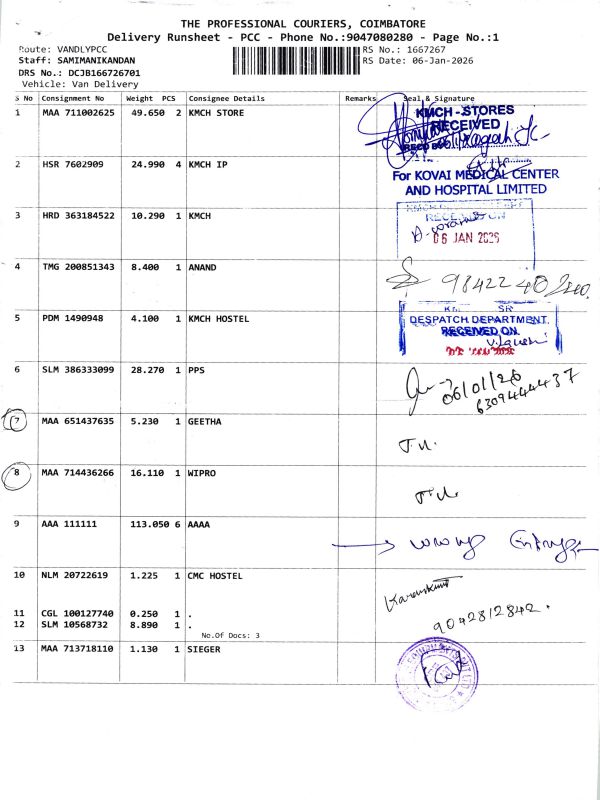 THE PROFESSIONAL COURIERS, COIMBATORE
Delivery Runsheet - PCC - Phone No.:9047080280 - Page No.:1
Route: VANDLYPCC
RS No.: 1667267
Staff: SAMIMANIKANDAN
RS Date: 06-Jan-2026
DRS No.: DCJB166726701
Vehicle: Van Delivery
S No Consignment No Weight PCS Consignee Details Remarks Seal & Signature
1 MAA 711002625 49.650 2 KMCH STORE
KMCH - STORES
RECEIVED
2 HSR 7602909 24.990 4 KMCH IP
For KOVAI MEDICAL CENTER
AND HOSPITAL LIMITED
3 HRD 363184522 10.290 1 KMCH
RECEIVED ON
06 JAN 2026
4 TMG 200851343 8.400 1 ANAND
5 PDM 1490948 4.100 1 KMCH HOSTEL
DESPATCH DEPARTMENT
RECEIVED ON
6 SLM 386333099 28.270 1 PPS
06/01/26
6309444437
7 MAA 651437635 5.230 1 GEETHA
8 MAA 714436266 16.110 1 WIPRO
9 AAA 111111 113.050 6 AAAA
wrong Entry
10 NLM 20722619 1.225 1 CMC HOSTEL
9042812842.
11 CGL 100127740 0.250 1 .
12 SLM 10568732 8.890 1 .
No.Of Docs: 3
13 MAA 713718110 1.130 1 SIEGER